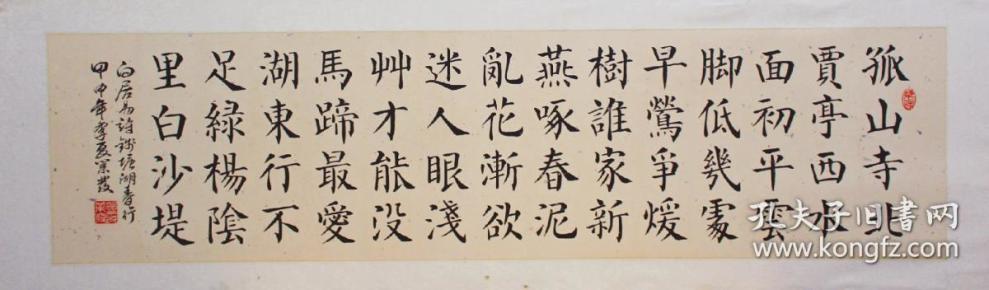 孤山寺北
賈亭西水
面初平雲
脚低幾處
早鶯爭煖
樹誰家新
燕啄春泥
亂花漸欲
迷人眼淺
艸才能没
馬蹄最愛
湖東行不
足緑楊陰
里白沙堤
白居易詩錢塘湖春行
甲申年季夏
孔夫子旧书网
www.kongfz.com